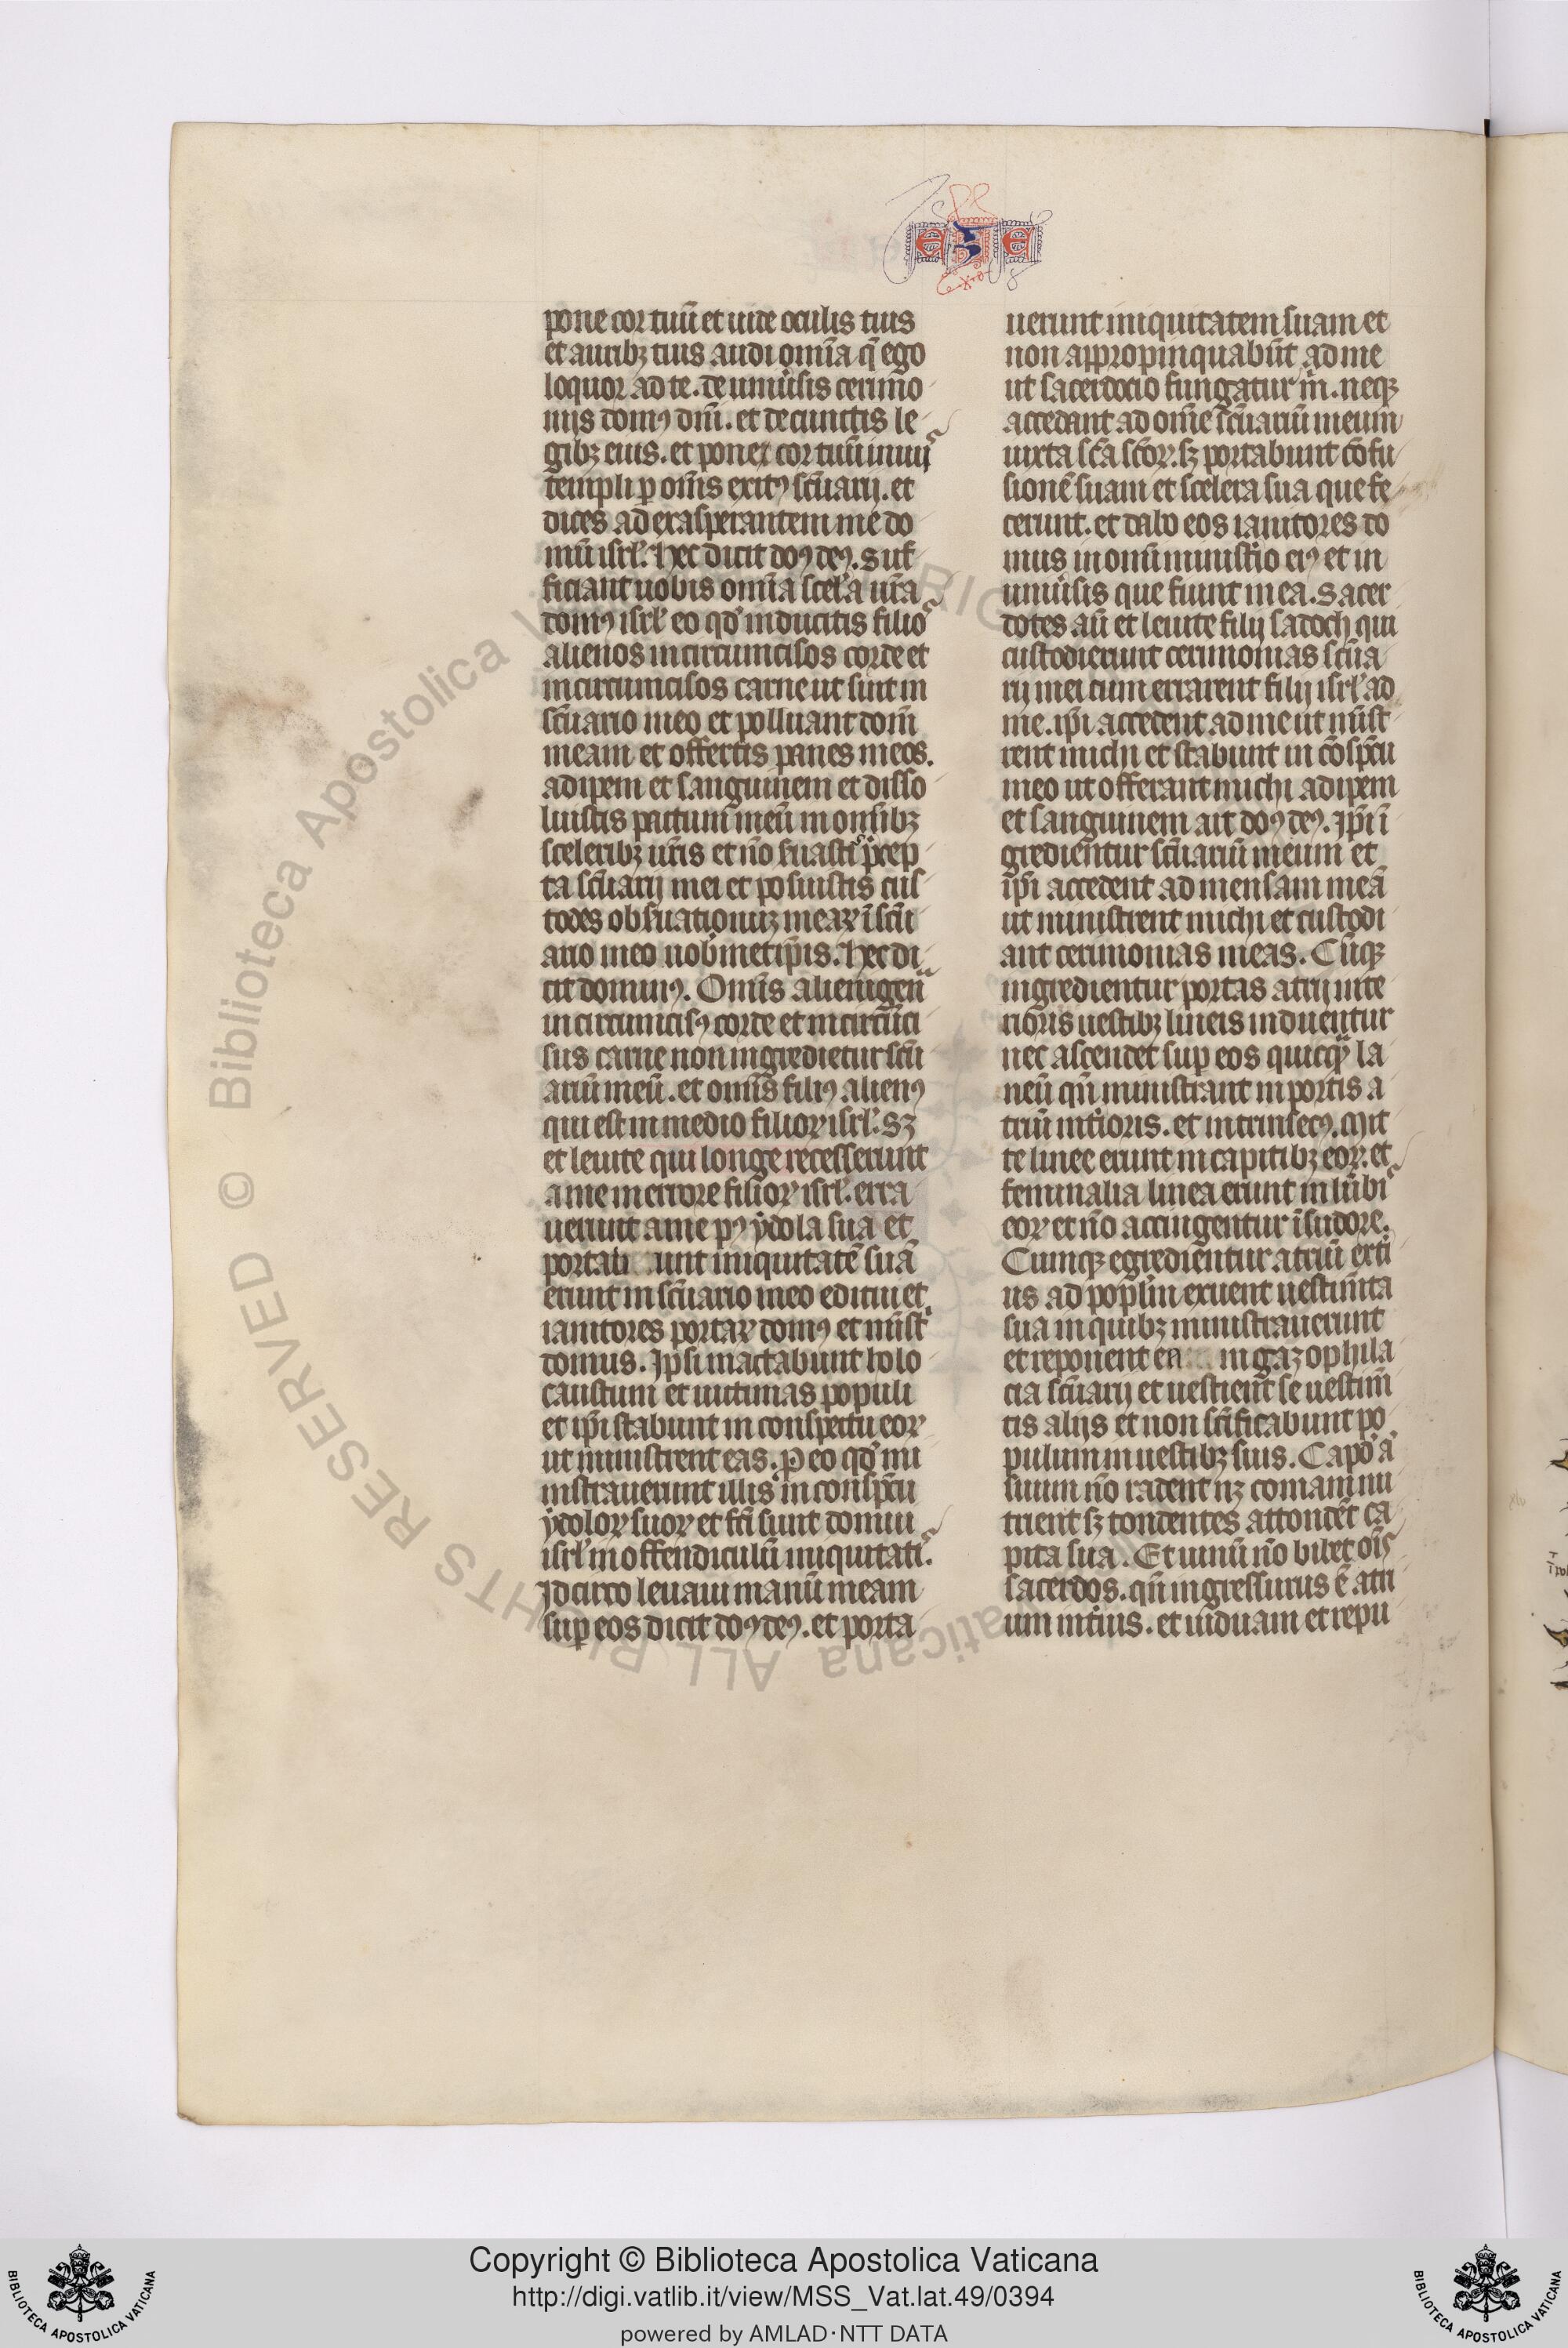 EZE
pone cor tuū et uide oculis tuis
et auribꝫ tuis audi om̄ia q̄ ego
loquor ad te. de uniůsis cerimo
nijs domꝰ dn̄i. et de cunctis le
gibꝫ eius. et pones cor tuū in uijs
templi ꝑ om̄s exitꝰ sc̄uarij. et
dices ad exasperantem me do
mū isrl̓. Hec dicit dn̄s deꝰ. Suf
ficiant uobis om̄ia scel̓a ur̄a
domꝰ isrl̓ eo qd̓ inducitis filios
alienos incircumcisos corde et
incircumcisos carne ut sint in
sc̄uario meo et polluant dom̄
meam et offertis panes meos.
adipem et sanguinem et disso
luistis pactum meū in om̄ibꝫ
sceleribꝫ ur̄is et nō s̓uastis p̄cep
ta sc̄uarij mei et posuistis cus
todes obs̓uationuꝫ meaꝝ ī sc̄u
ario meo uob̓metip̄is. Hec di
cit dominꝰ. Om̄is alienigena
incircumcisꝰ corde et incircūci
sus carne non ingredietur sc̄u
ariū meū. et om̄is filiꝰ alienꝰ
qui est in medio filioꝝ isrl̓. Sꝫ
et leuite qui longe recesserunt
a me in errore filioꝝ isrl̓. erra
uerunt a me pꝰ ydola sua et
portab unt iniquitatē suā
erunt in sc̄uario meo editui et
ianitores portaꝝ domꝰ et mīst̓
domus. Ipsi mactabunt holo
caustum et uictimas populi
et ip̄i stabunt in conspectu eoꝝ
ut ministrent eas. P eo qd̓ mi
nistrauerunt illis in consp̄cu
ydoloꝝ suoꝝ et fc̄i sunt domui
isrl̓ in offendiculū iniquitatis.
Idcirco leuaui manū meam
suꝑ eos dicit dn̄s deꝰ. et porta
uerunt iniquitatem suam et
non appropinquabūt ad me
ut sacerdocio fungatur m̄. neqꝫ
accedant ad om̄e sc̄uariū meum
iuxta sc̄a sc̄oꝝ. sꝫ portabunt cōfu
sionē suam et scelera sua que fe
cerunt. et dabo eos ianitores do
mus in om̄ī minist̓io eiꝰ et in
uniůsis que fiunt in ea. Sacer
dotes aū et leuite filij sadoch qui
custodierunt cerimonias sc̄ua
rij mei cum errarent filij isrl̓ ad
me. ip̄i accedent ad me ut mīst
rent michi et stabunt in cōsp̄cu
meo ut offerant michi adipem
et sanguinem ait dn̄s deꝰ. Ip̄i ī
gredientur sc̄uariū meum et
ip̄i accedent ad mensam meā
ut ministrent michi et custodi
ant cerimonias meas. Cūqꝫ
ingredientur portas atrij inte
rioris uestibꝫ lineis induentur
nec ascendet suꝑ eos quicqͣ la
neū qn̄ ministrant in portis a
trij int̓ioris. et intrinsecꝰ. Mit
te linee erunt in capitibꝫ eoꝝ. et
feminalia linea erunt in lūbis
eoꝝ et nō accingentur ī sudore.
Cumqꝫ egredientur atriū ext̓i
us ad popl̓m exuent uestim̄ta
sua in quibꝫ ministrauerunt
et reponent ea in gazophila
cia sc̄uarij et uestient se uestim̄
tis alijs et non sc̄ificabunt po
pulum in uestibꝫ suis. Capd̓ a
suum nō radent nꝫ comam nu
trient sꝫ tondentes attondēt ca
pita sua. Et uinū nō bibet oīs
sacerdos. qn̄ ingressurus ē atri
um int̓ius. et uiduam et repu
Copyright © Biblioteca Apostolica Vaticana
http://digi.vatlib.it/view/MSS_Vat.lat.49/0394
powered by AMLAD·NTT DATA
BIBLIOTECA APOSTOLICA VATICANA
BIBLIOTECA APOSTOLICA VATICANA